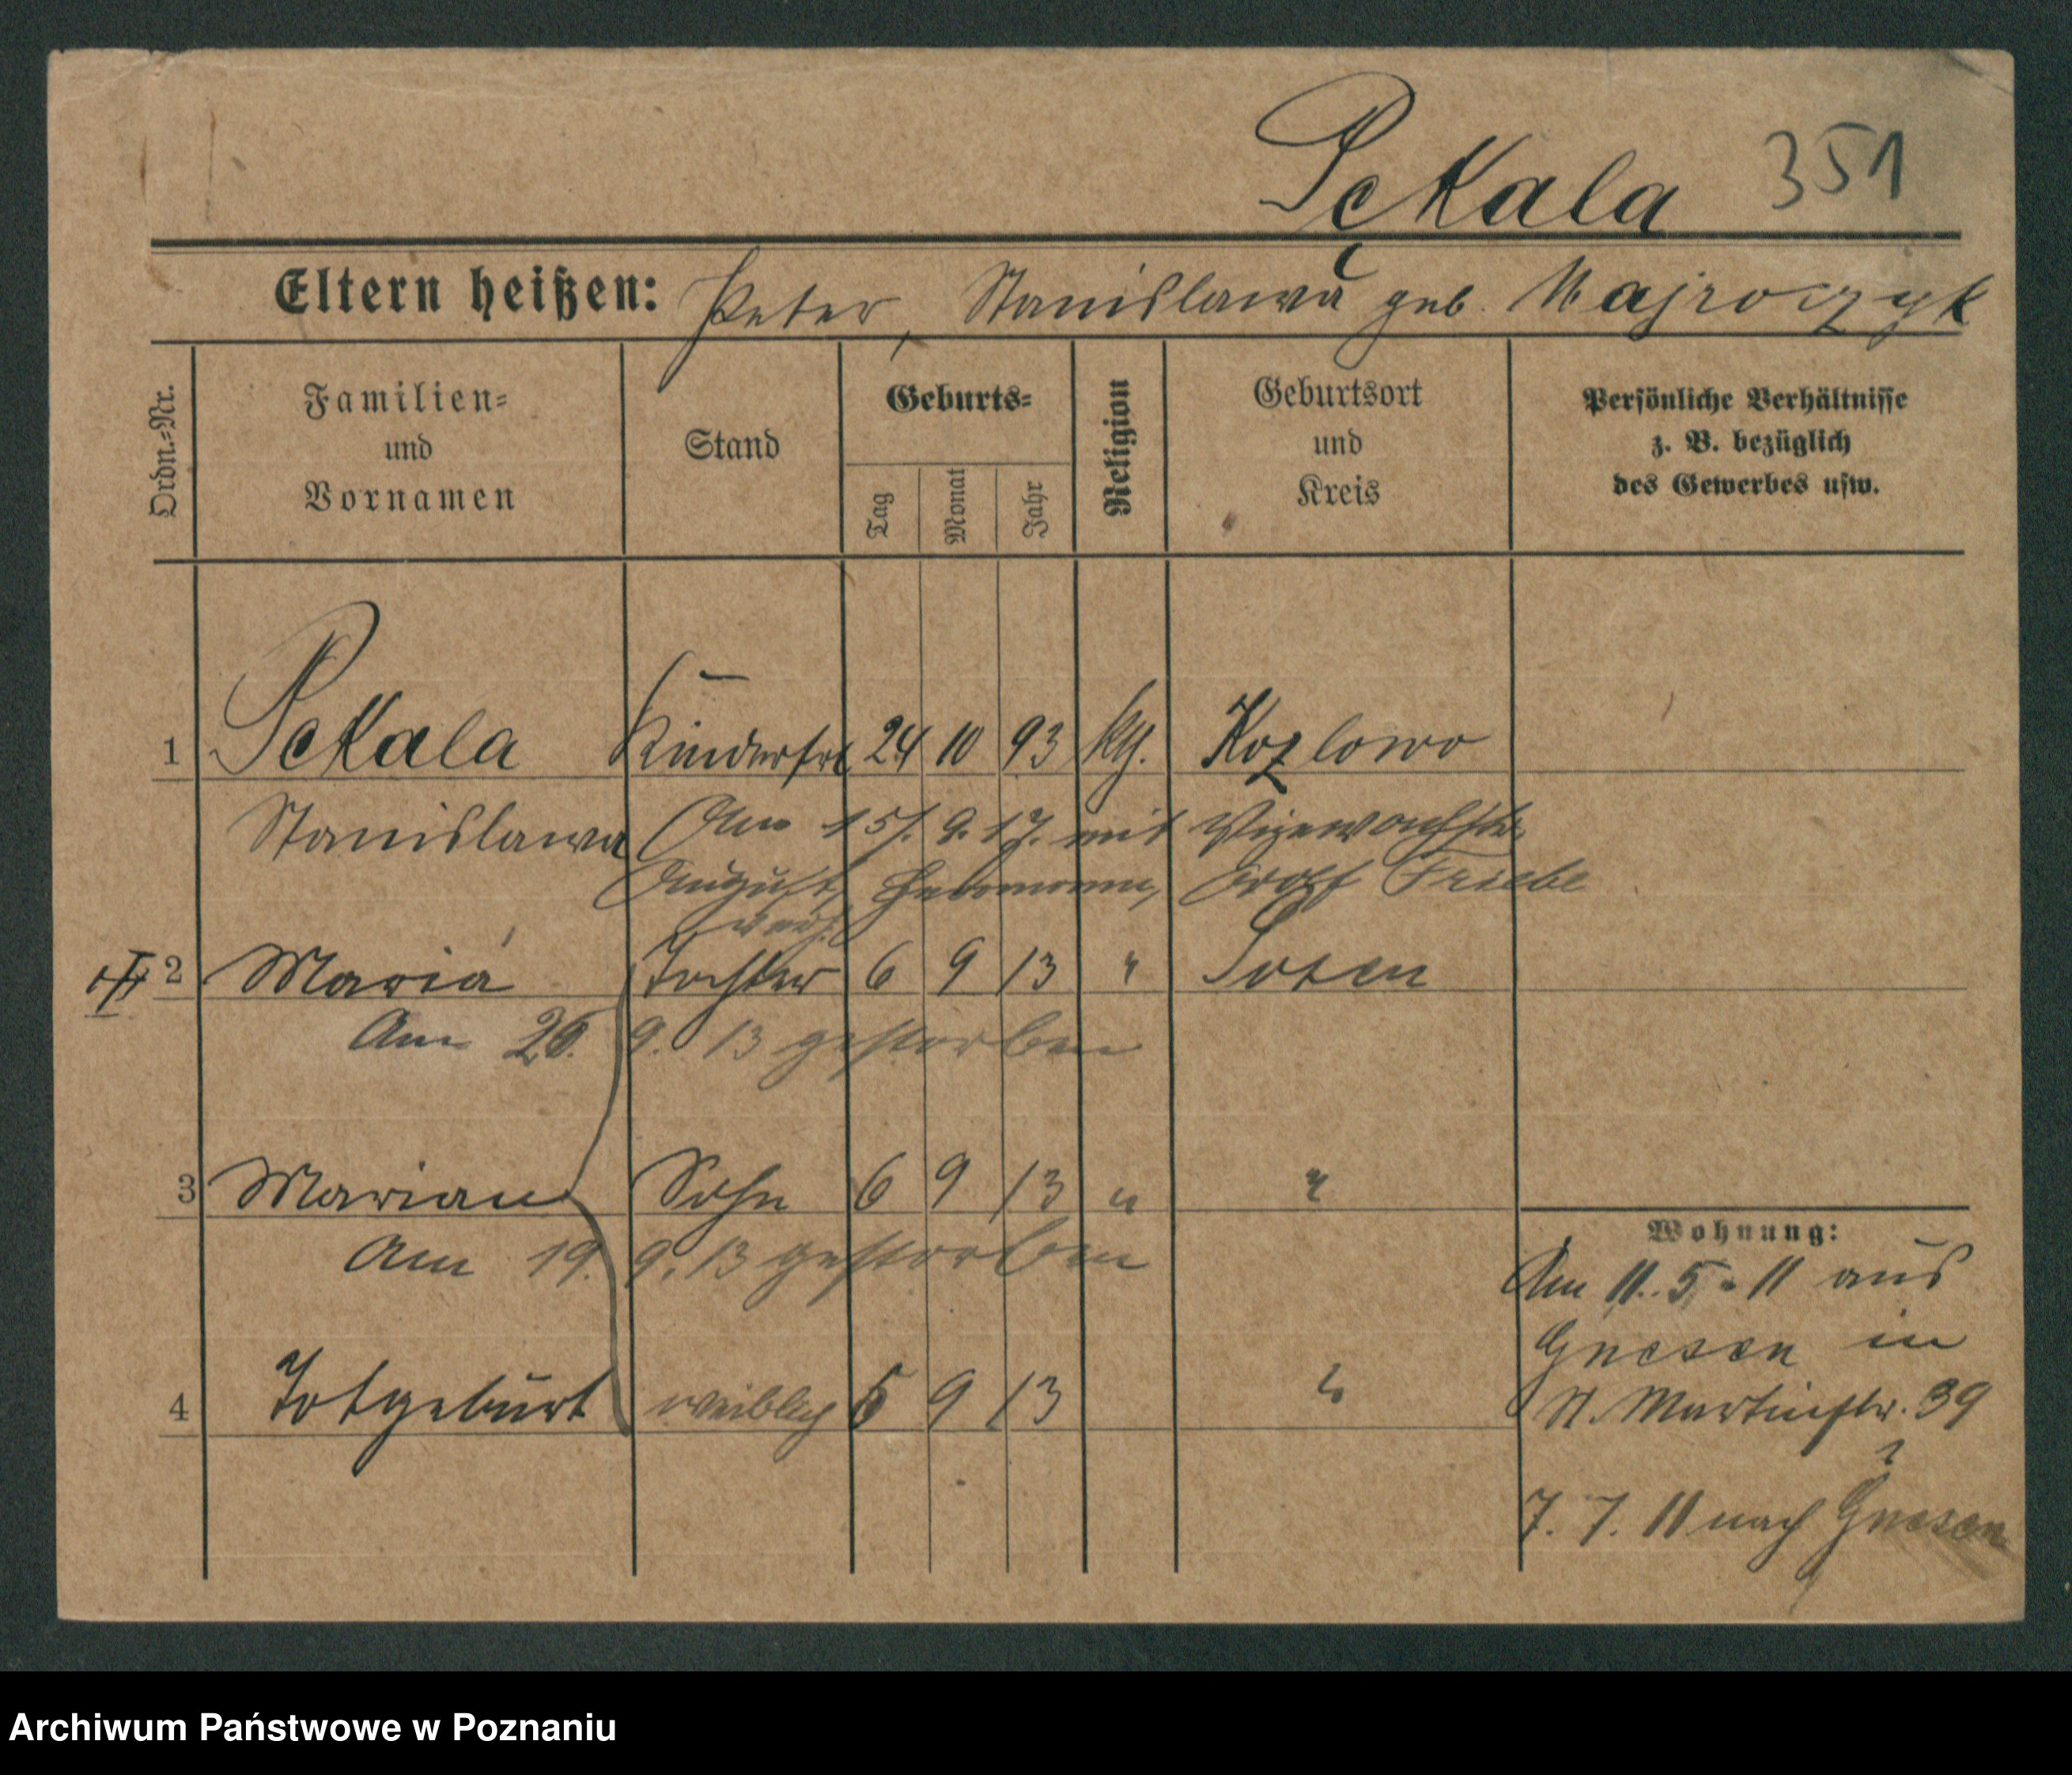 Pękala 351
Eltern heißen: Peter, Stanislawa geb. Majroczyk
Ordn.-Nr.
Familien- und Vornamen
Stand
Geburts-
Tag
Monat
Jahr
Religion
Geburtsort und Kreis
Persönliche Verhältnisse z. B. bezüglich des Gewerbes usw.
1 Pekala Kinderfrl 24 10 93 kth. Kozlowo
Stanislawa Am 15. 9. 17. mit Vizewachtm.
August, Hermann, Adolf Friebe
verh.
2 Maria Tochter 6 9 13 " Posen
Am 26. 9. 13 gestorben
3 Marian Sohn 6 9 13 " "
Am 19. 9. 13 gestorben
4 Totgeburt weiblich 6 9 13 "
Wohnung:
Am 11. 5. 11 aus
Gnesen in
St. Martinstr. 39
7. 7. 11 nach Gnesen
Archiwum Państwowe w Poznaniu